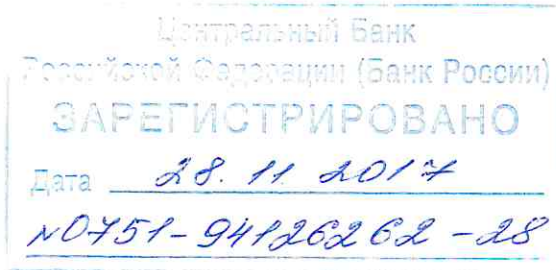 Центральный Банк
Российской Федерации (Банк России)
ЗАРЕГИСТРИРОВАНО
Дата 28. 11. 2017
№0751-94126262-28